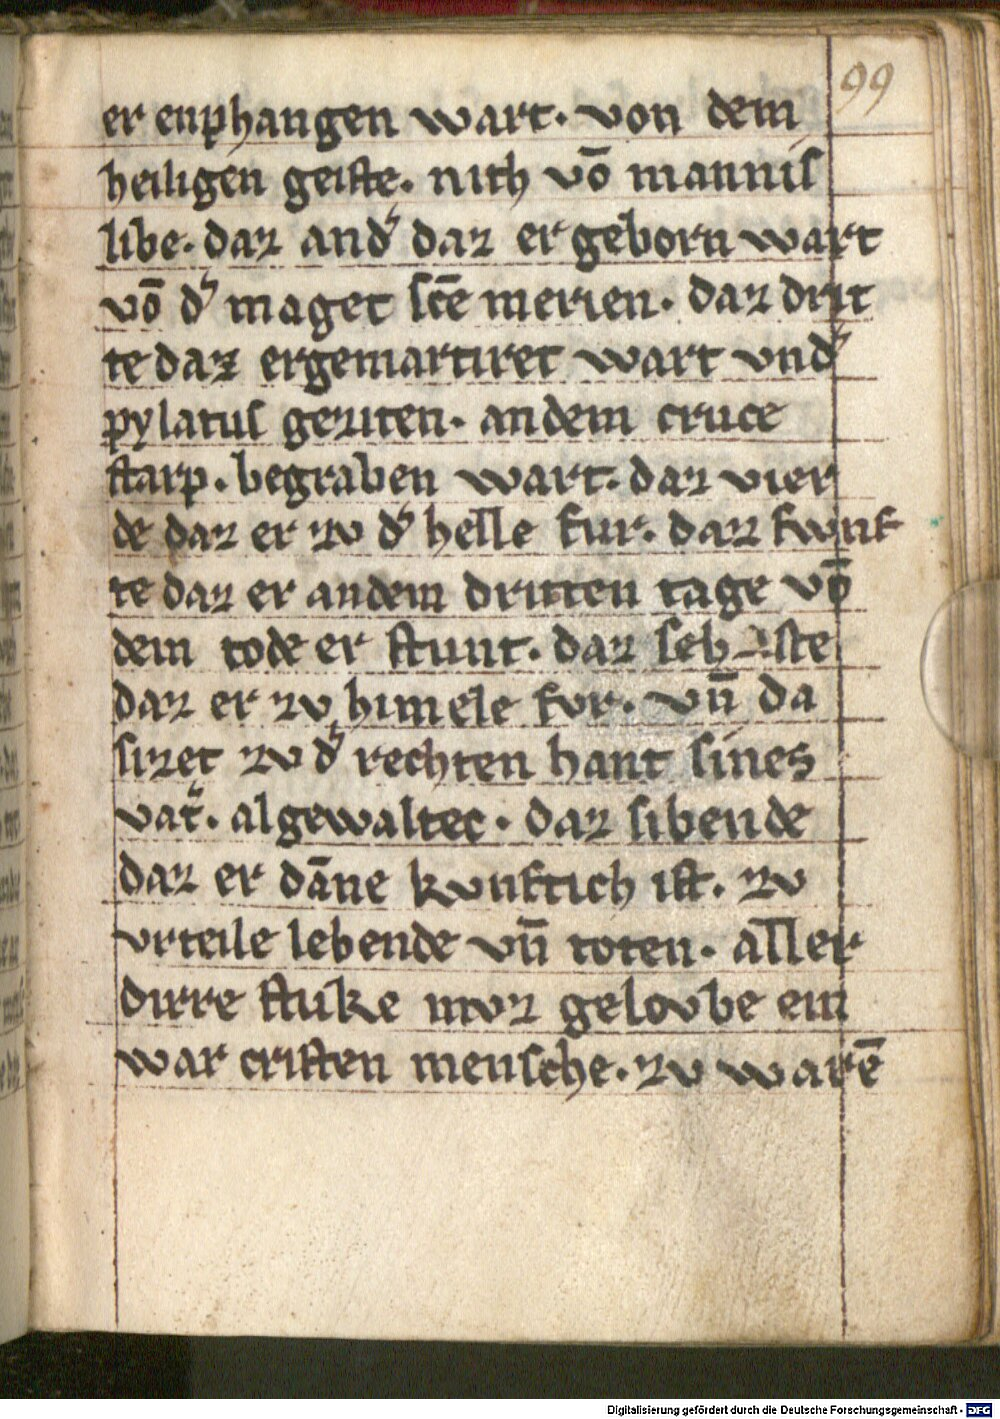 99
er enphangen wart. von dem
heiligen geiſte. nith vō manniſ
libe. daz and᷎ daz er geborn wart
vō d᷎ maget ſcē merien. daz drit
te daz er gemartiret wart vnd᷎
pylatuſ geziten. an dem cruce
ſtarp. begraben wart. daz vier
de daz er zv d᷎ helle fur. daz fwnf
te daz er an dem dritten tage vō
dem tode er ſtunt. daz ſeh ſte
daz er zv himele fvr. vn̄ da
ſizet zv d᷎ rechten hant ſines
vat᷎. algewaltec. daz ſibende
daz er dāne kvnftich iſt. zv
vrteile lebende vn̄ toten. aller
dirre ſtuke mvz gelovbe ein
war criſten menſche. zv warē
Digitalisierung gefördert durch die Deutsche Forschungsgemeinschaft - DFG